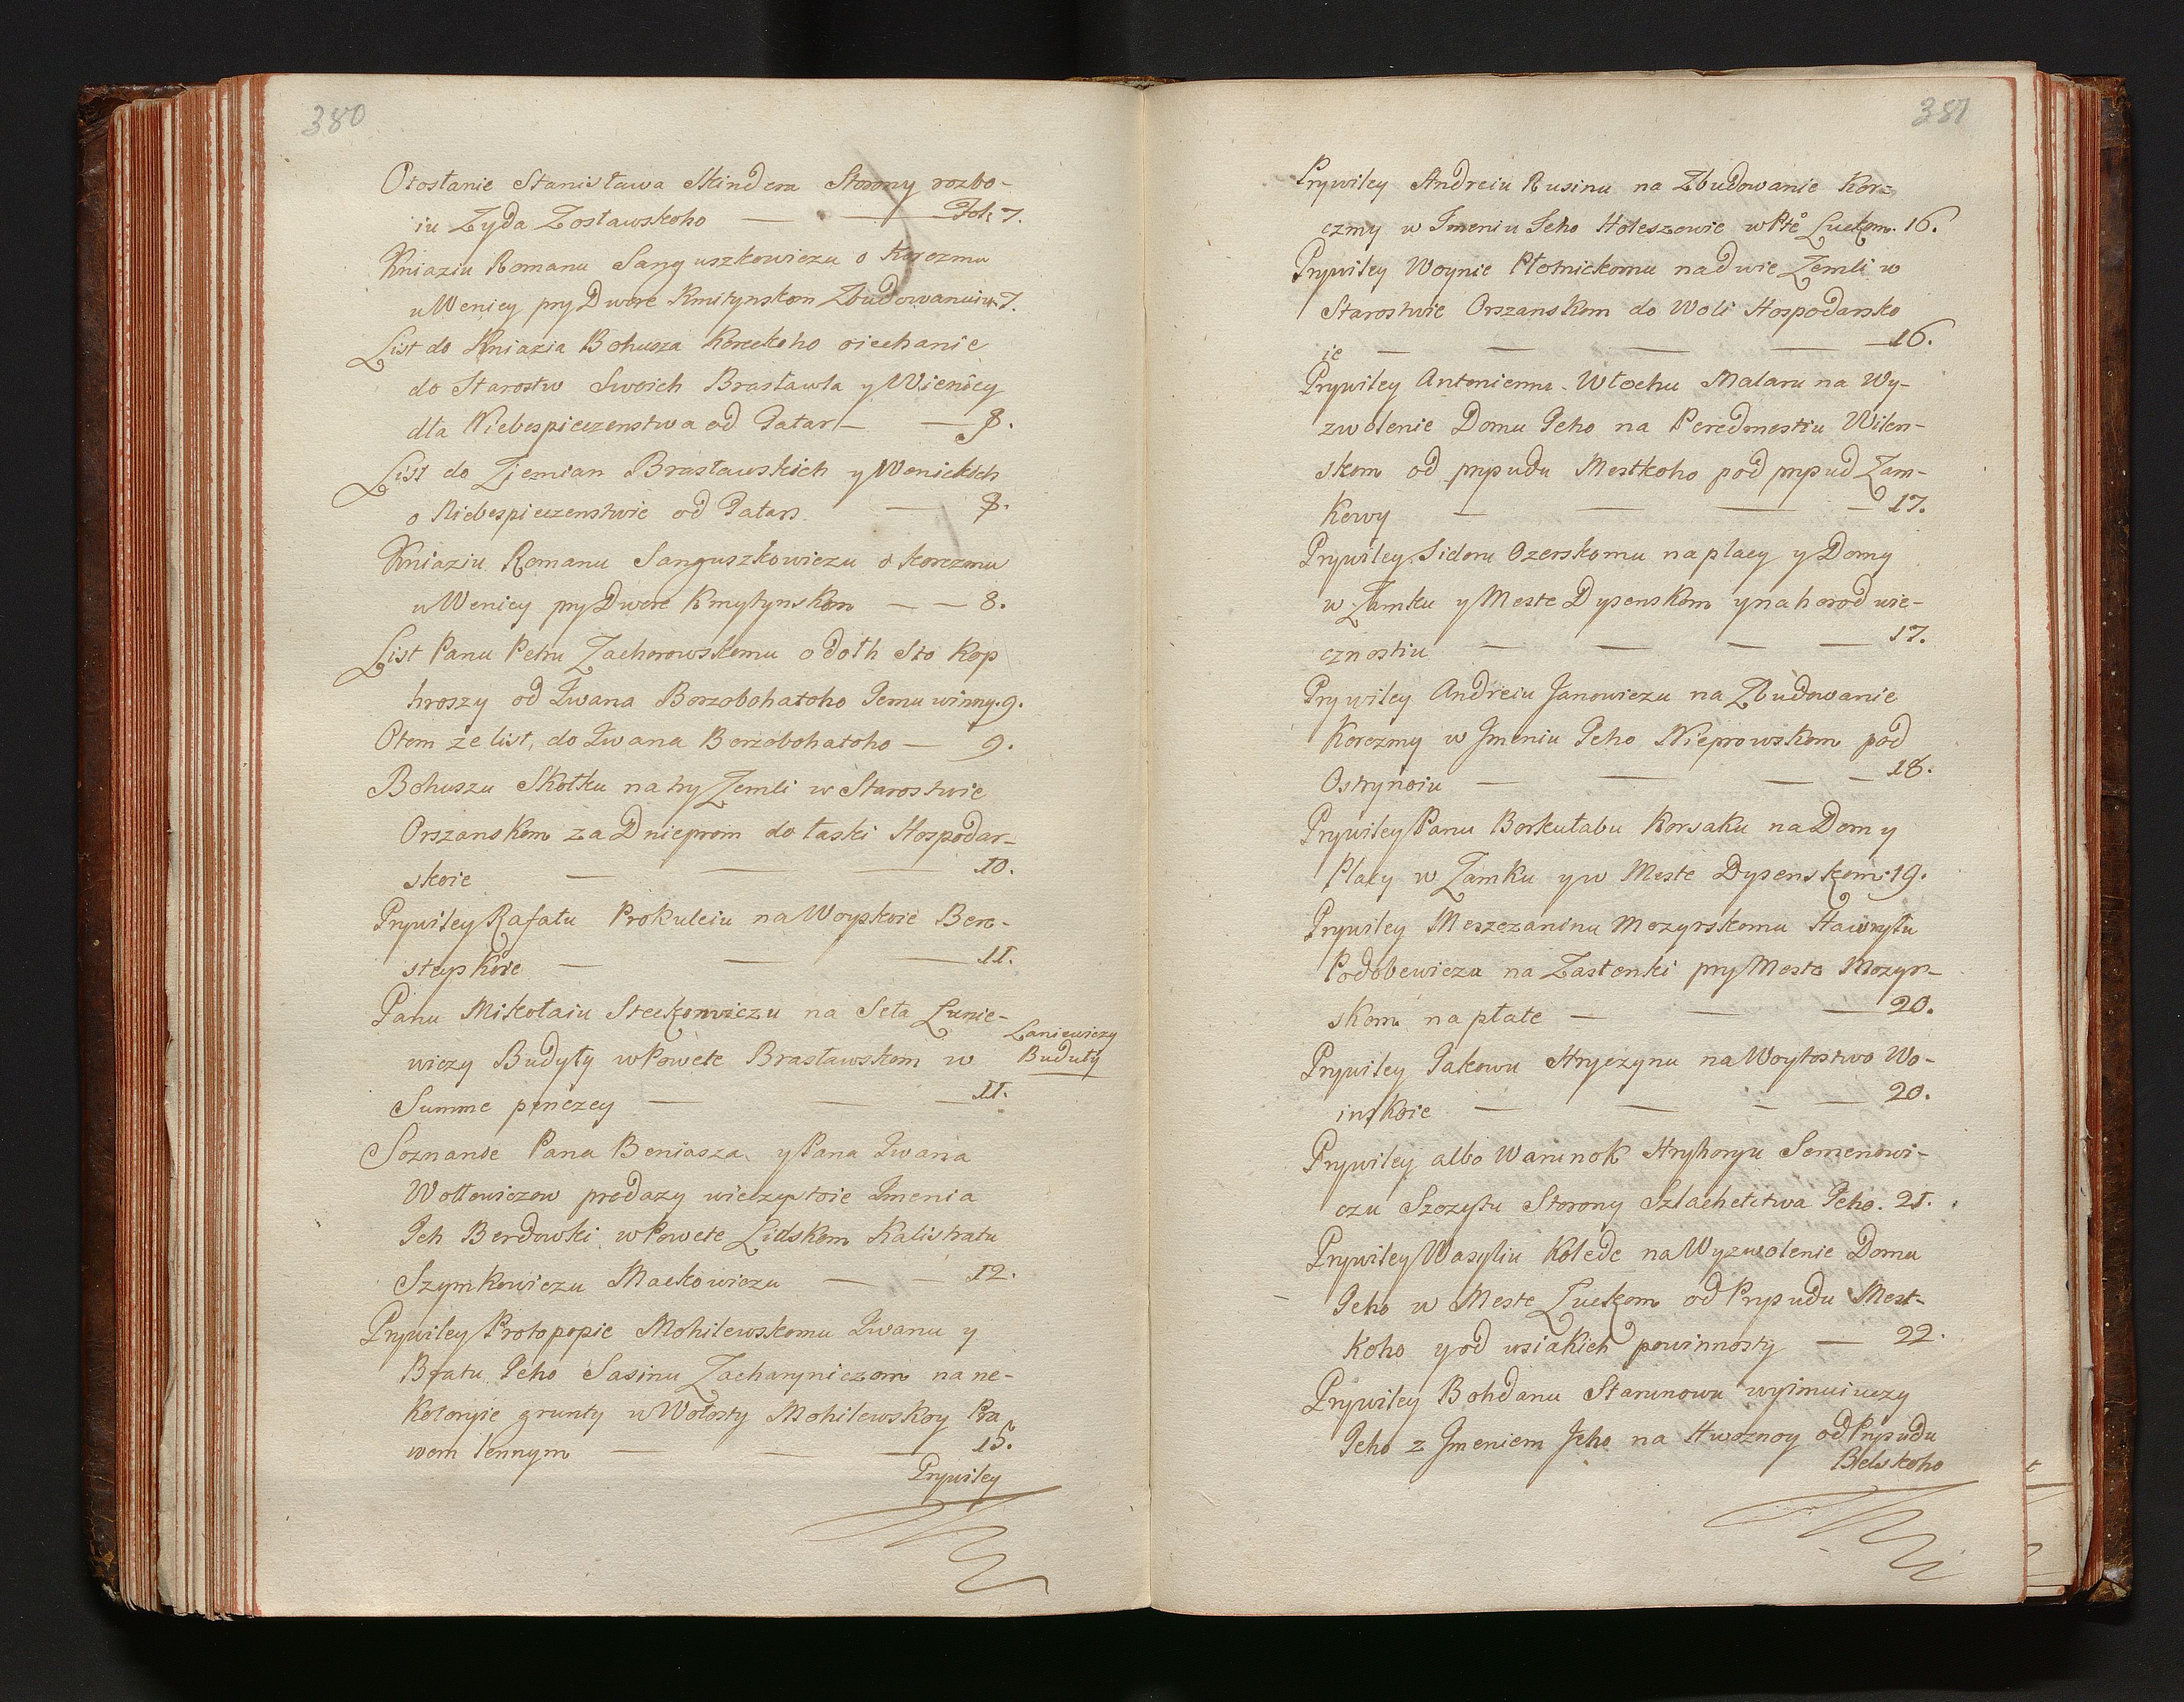 380
Otosłanie Stanisława Skindera Storony rozbo-
iu Zyda Zosławskoho — Fol: 7.
Kniaziu Romanu Sanguszkowiczu o Korczmu
u Wenicy pry Dwore Kmitynskom Zbudowanuiu 7.
List do Kniazia Bohusza Koreckoho oiechanie
do Starostw Swoich Brasławla y Wienicy
dla Niebespieczenstwa od Tatar — — 8.
List do Ziemian Brasławskich y Wenickich
o Niebespieczenstwie od Tatar — 8.
Kniaziu Romanu Sanguszkowiczu o Korczmu
u Wenicy pry Dwore Kmytynskom — — 8.
List Panu Petru Zachorowskomu o dołh Sto Kop
hroszy od Iwana Borzobohatoho Iemu winny. 9.
Otom ze list, do Iwana Borzobohatoho — 9.
Bohuszu Skołku na try Zemli w Starostwie
Orszanskom za Dnieprom do łaski Hospodar-
skoie — — — 10.
Prywiley Rafału Prokuleiu na Woyskoie Bere-
steyskoie — — — 11.
Panu Mikołaiu Steckowiczu na Seła Łunie-
wiczy Budyły w Powete Brasławskom w
Łaniewiczy
Buduły
Summe penezey — — — 11.
Soznanoe Pana Beniasza y Pana Iwana
Wołłowiczow predazy wieczystoie Imenia
Ich Berdowki w Powete Lidskom Kalistratu
Szymkowiczu Mackowiczu — — 12.
Prywiley Protopopie Mohilewskomu Iwanu y
Bratu Ieho Sasinu Zacharyniczom na ne-
Kotoryie grunty u Wołosty Mohilewskoy Pra
wom lennym — — — 15.
Prywiley
381
Prywiley Andreiu Rusinu na Zbudowanie Kor-
czmy w Imeniu Ieho Holeszowie w Pte Luckom. 16.
Prywiley Woynie Płotnickomu na dwie Zemli w
Starostwie Orszanskom do Woli Hospodarsko
ie — — — — 16.
Prywiley Antoniemu Włochu Malaru na Wy-
zwolenie Domu Ieho na Peredmestiu Wilen-
skom od prysudu Mestkoho pod prysud Zam-
Kowy — — — — 17.
Prywiley Sidoru Ozerskomu na placy y Domy
w Zamku y Meste Dysenskom y na horod wie-
cznostiu — — — — 17.
Prywiley Andreiu Janowiczu na Zbudowanie
Korczmy w Imeniu Ieho Nieprowskom pod
Ostrynoiu — — — — 18.
Prywiley Panu Borkułabu Korsaku na Dom y
Placy w Zamku y w Meste Dysenskom. 19.
Prywiley Meszczaninu Mozyrskomu Hawryłu
Podobewiczu na Zastenki pry Mesto Mozyr-
skom na płate — — — 20.
Prywiley Iakowu Hryczynu na Woytostwo Wo-
inskoie — — — — 20.
Prywiley albo Warunok Hryhoryu Semenowi-
czu Szczytu Storony Szlachetctwa Ieho. 21.
Prywiley Wasyliu Kolede na Wyzwolenie Domu
Ieho w Meste Luckom od Prysudu Mest-
Koho y od wsiakich powinnosty — 22.
Prywiley Bohdanu Starunowu wyimuiuczy
Ieho z Imeniem Ieho na Hwoznoy od Prysudu
Belskoho